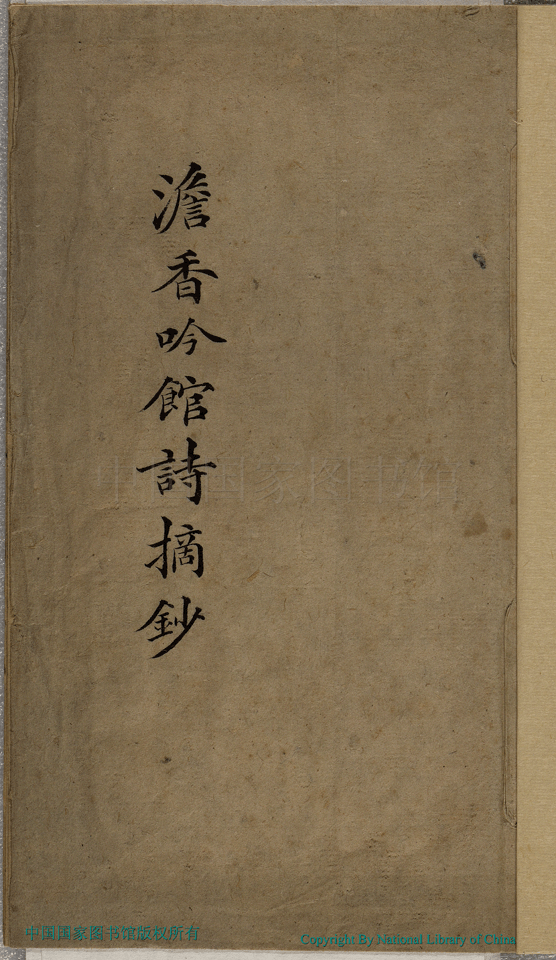 澹香吟館詩摘鈔
中国国家图书馆
中国国家图书馆版权所有
Copyright By National Library of China